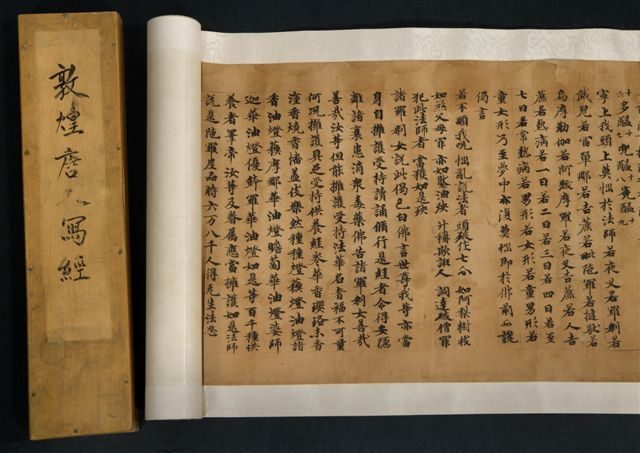 敦煌唐人寫經
多醯 兜醯 㝹醯
寧上我頭上莫惱於法師若夜叉若羅剎若
餓鬼若富單那若吉蔗若毗陁羅若揵馱若
烏摩勒伽若阿跋摩羅若夜叉吉蔗若人吉
蔗若熱病若一日若二日若三日若四日若至
七日若常熱病若男形若女形若童男形若
童女形乃至夢中亦復莫惱即於佛前而說
偈言
若不順我呪 惱亂說法者 頭破作七分 如阿梨樹枝
如煞父母罪 亦如壓油殃 升稱欺誑人 調達破僧罪
犯此法師者 當獲如是殃
諸羅剎女說此偈已白佛言世尊我等亦當
身自擁護受持讀誦脩行是經者令得安隱
離諸衰患消眾毒藥佛告諸羅剎女善哉
善哉汝等但能擁護受持法華名者福不可量
何況擁護具足受持供養經卷華香瓔珞末香
塗香燒香幡蓋伎樂然種種燈蘇燈油燈諸
香油燈蘇摩那華油燈瞻蔔華油燈婆師
迦華油燈優鉢羅華油燈如是等百千種供
養者睪帝汝等及眷屬應當擁護如是法師
說是陁羅尼品時六万八千人得无生法忍